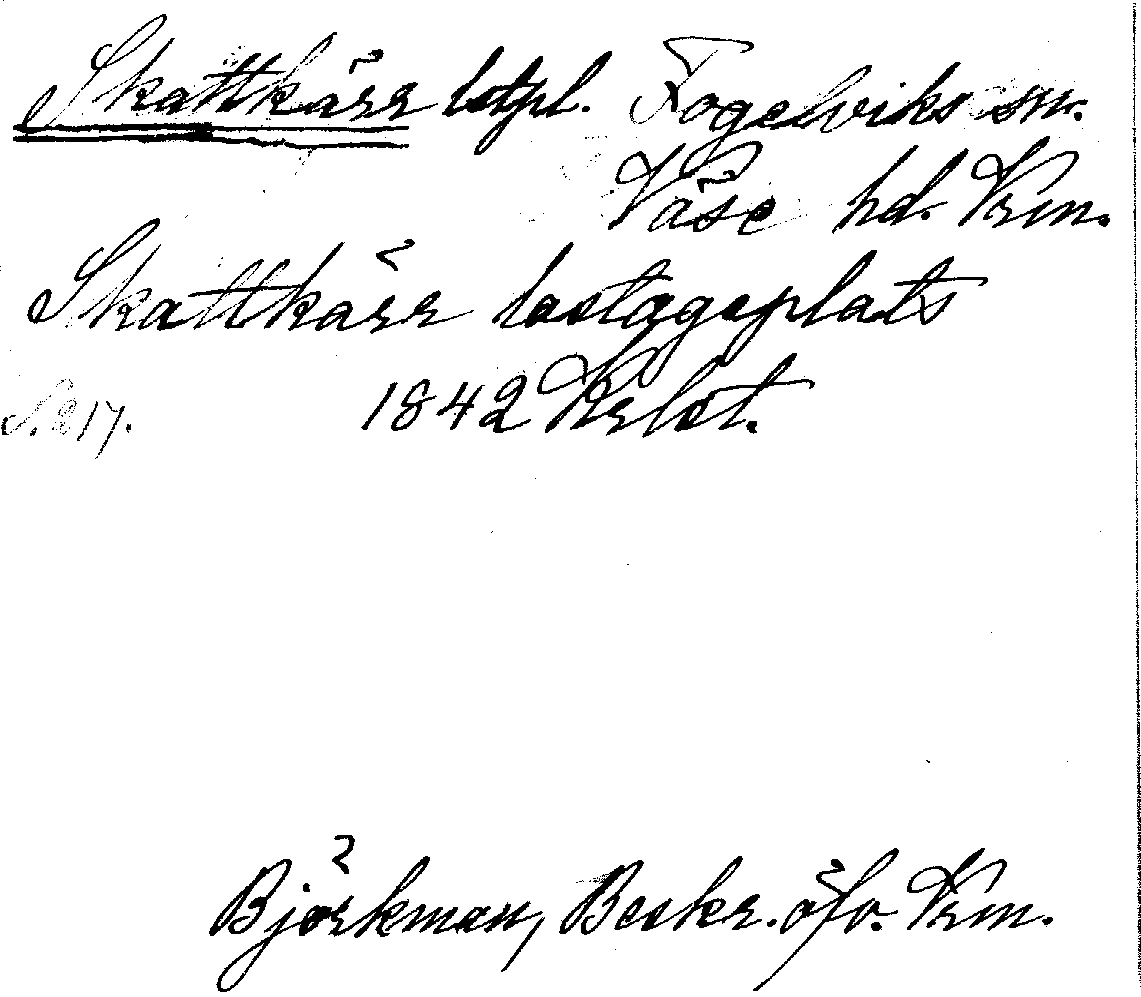 Skattkärr lstpl. Fogelviks sn.
Väse hd. Vrm.
Skattkärr lastageplats
S. 217. 1842
Björkman, Beskr. öfv. Vrm.